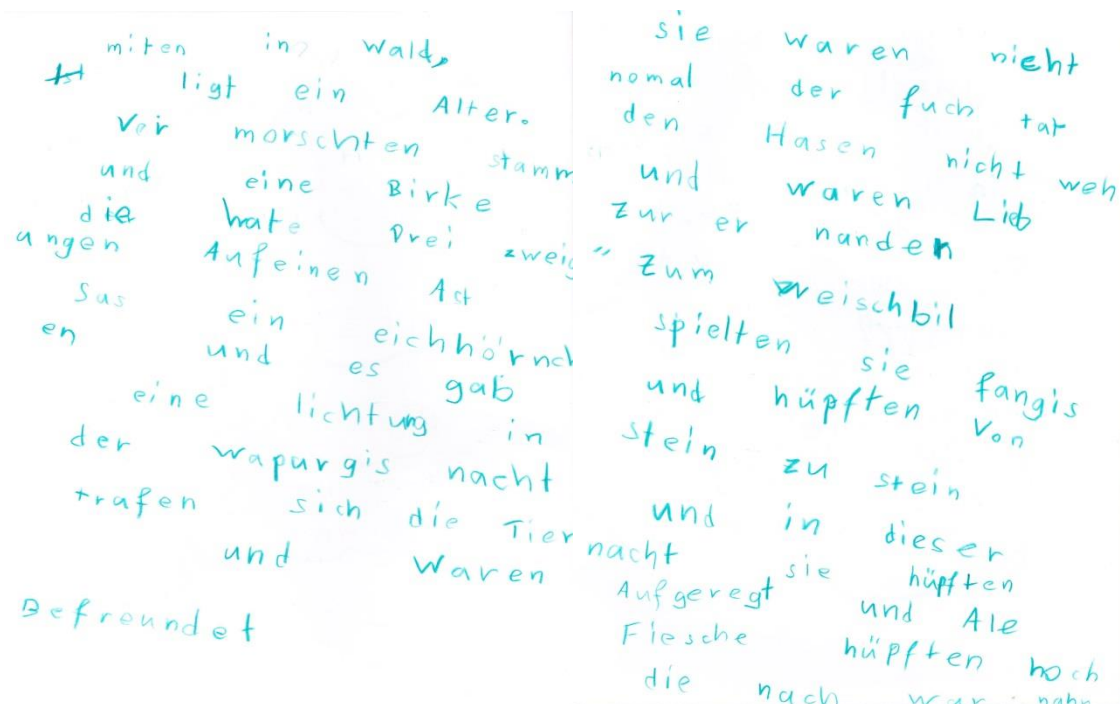 miten in wald,
ligt ein Alter.
Vor morschten stamm
und eine Birke
die hate Drei zweig
ungen Aufeinen Ast
sas ein eichhörnch
en und es gab
eine lichtung in
der wapurgis nacht
trafen sich die Tier
und waren
Befreundet
sie waren nicht
nomal der fuch tat
den Hasen nicht weh
und waren Lieb
zur er nanden
" zum weischbil
spielten sie fangis
und hüpften von
stein zu stein
und in dieser
nacht sie hüpften
Aufgeregt und Ale
Fiesche hüpften hoch
die nach war